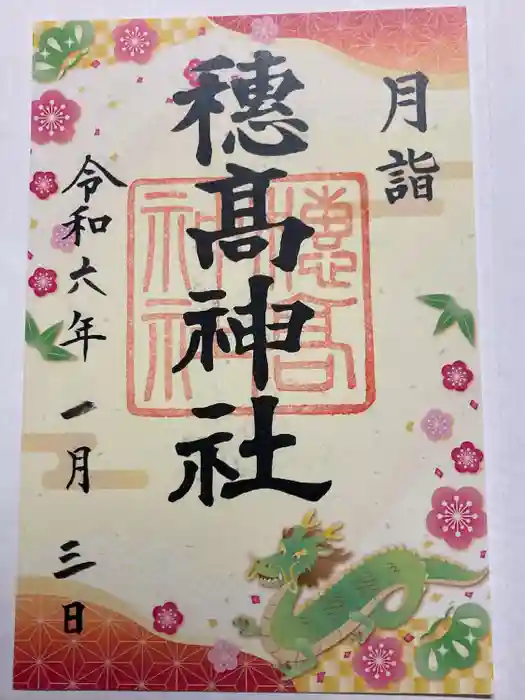 月詣
穗髙神社
穂高神社
令和六年 一月 三日